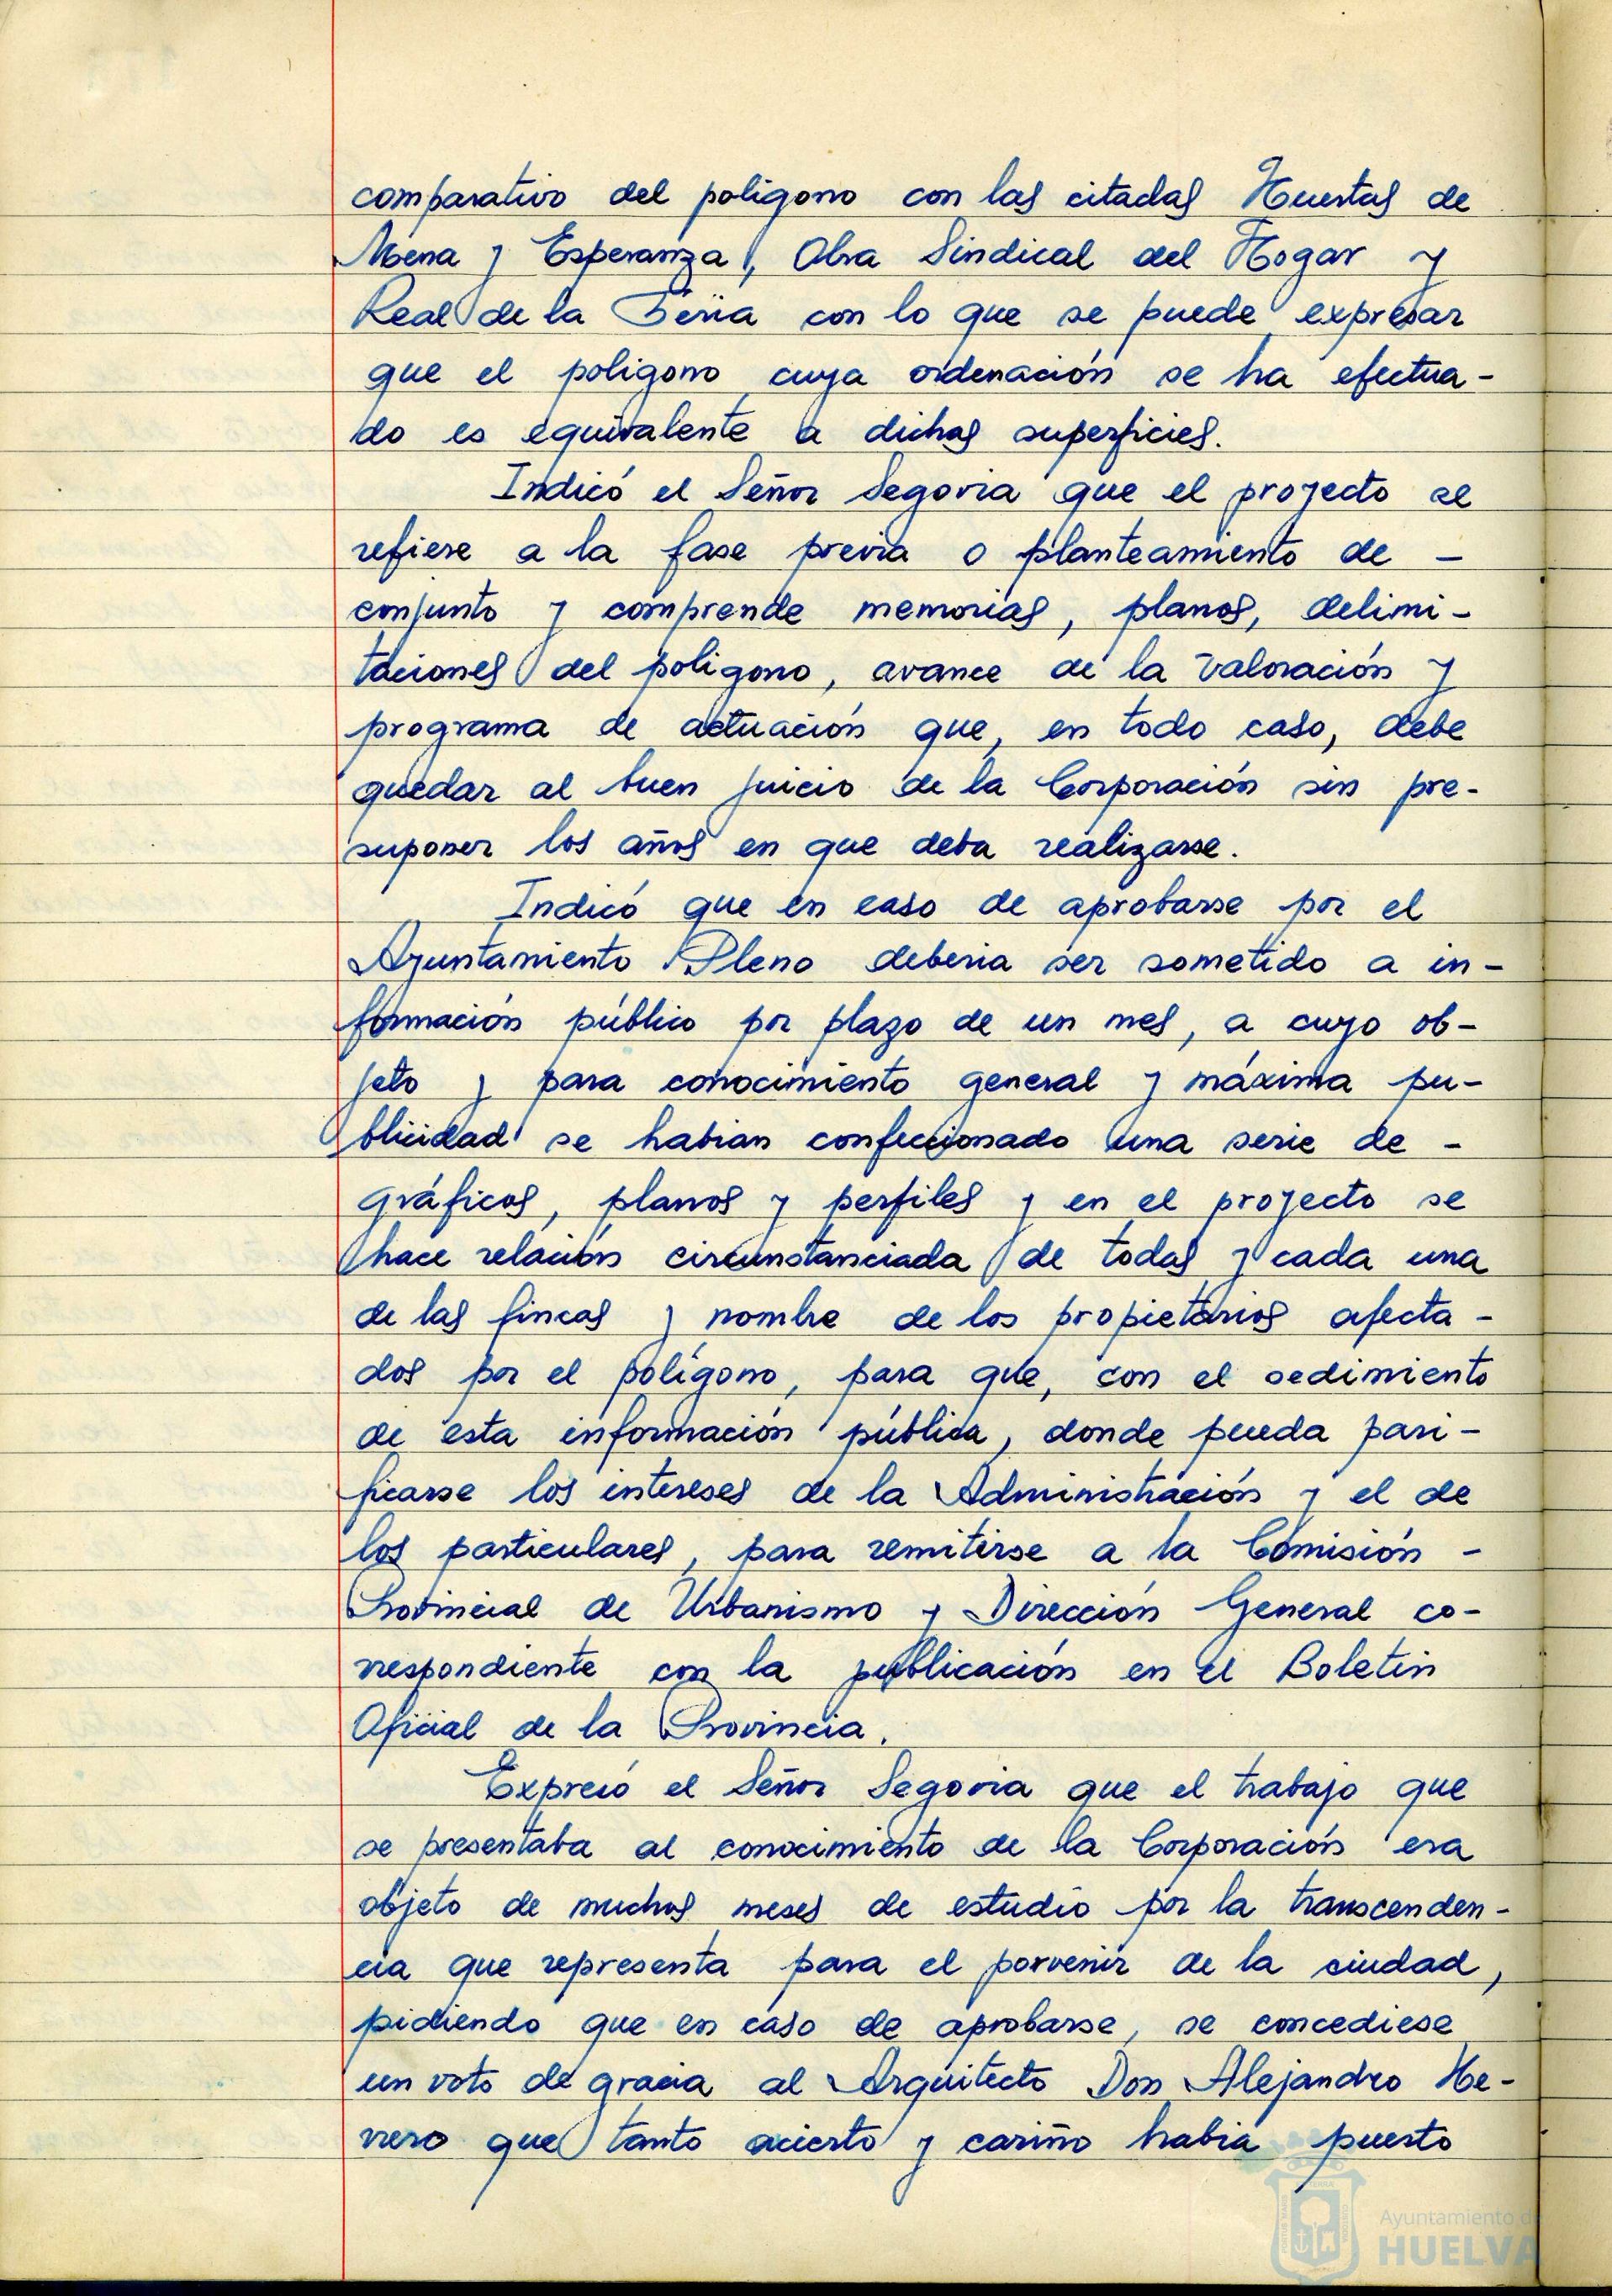 comparativo del poligono con las citadas Huertas de
Mena y Esperanza, Obra Sindical del Hogar y
Real de la Feria con lo que se puede expresar
que el poligono cuya ordenación se ha efectua-
do es equivalente a dichas superficies.
Indicó el Señor Segovia que el proyecto se
refiere a la fase previa o planteamiento de -
conjunto y comprende memorias, planos, delimi-
taciones del poligono, avance de la valoración y
programa de actuación que, en todo caso, debe
quedar al buen juicio de la Corporación sin pre-
suponer los años en que deba realizarse.
Indicó que en caso de aprobarse por el
Ayuntamiento Pleno deberia ser sometido a in-
formación público por plazo de un mes, a cuyo ob-
jeto y para conocimiento general y máxima pu-
blicidad se habian confeccionado una serie de -
gráficos, planos y perfiles y en el proyecto se
hace relación circunstanciada de todas y cada una
de las fincas y nombre de los propietarios afecta-
dos por el polígono, para que, con el sedimiento
de esta información pública, donde pueda pari-
ficarse los intereses de la Administración y el de
los particulares, para remitirse a la Comisión -
Provincial de Urbanismo y Dirección General co-
rrespondiente con la publicación en el Boletin
Oficial de la Provincia.
Expresó el Señor Segovia que el trabajo que
se presentaba al conocimiento de la Corporación era
objeto de muchos meses de estudio por la transcenden-
cia que representa para el porvenir de la ciudad,
pidiendo que en caso de aprobarse, se concediese
un voto de gracia al Arquitecto Don Alejandro He-
rrero que tanto acierto y cariño habia puesto
Ayuntamiento de
HUELVA